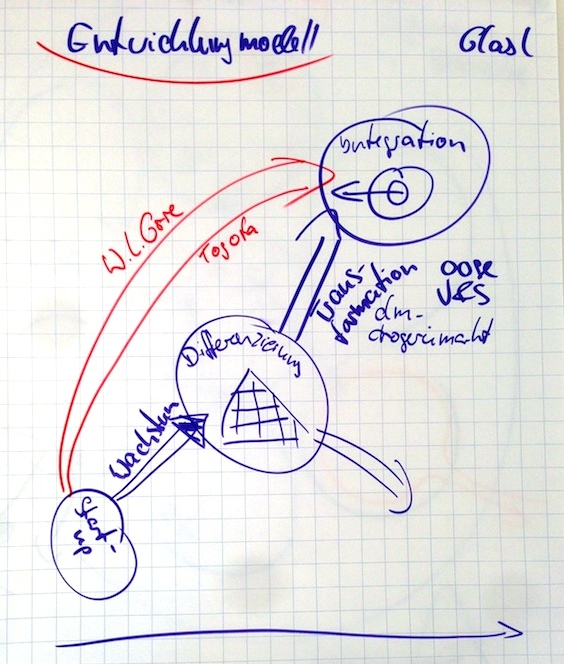 Entwicklungsmodell
Glasl
Integration
W.L. Gore
Trans-
formation
oose
dm-
drogeriemarkt
Differenzierung
Wachstum
Start-
up